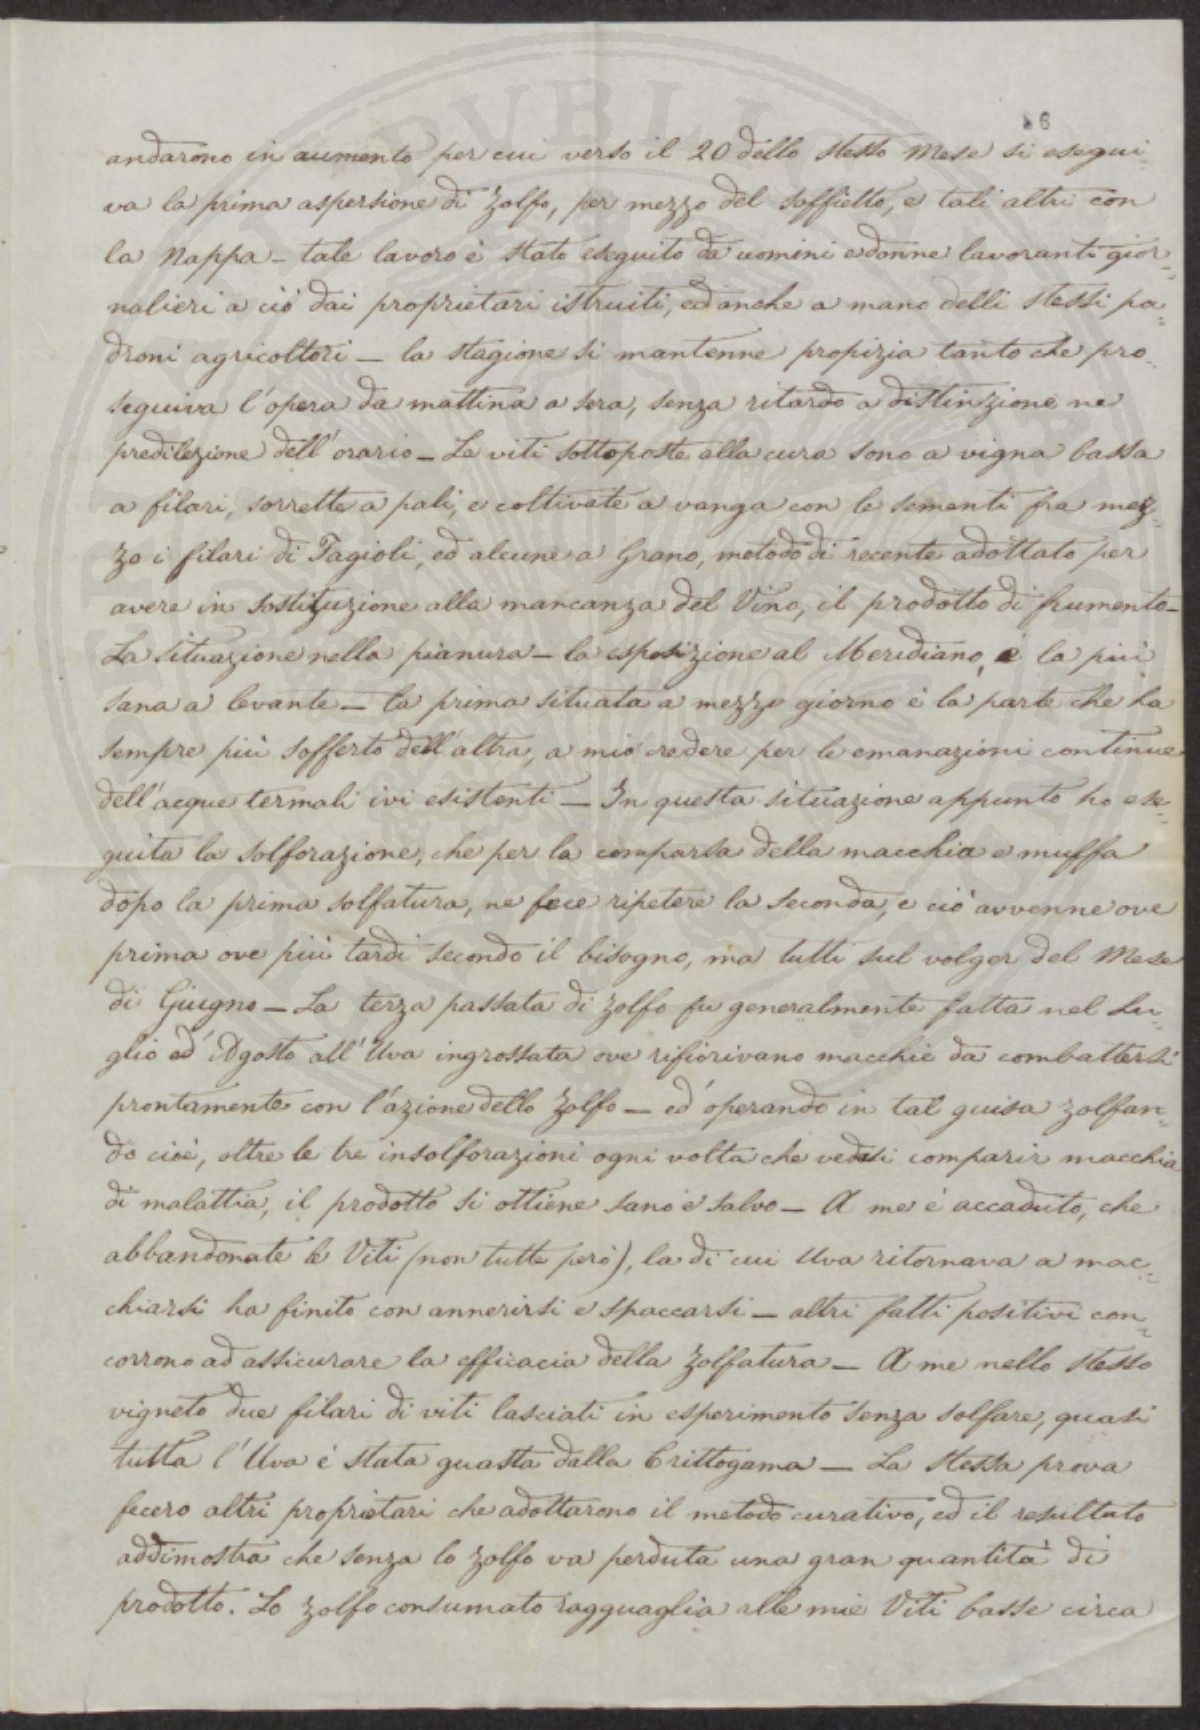 46
andarono in aumento per cui verso il 20 dello stesso Mese si esegui
va la prima aspersione di Zolfo, per mezzo del soffietto, e tali altri con
la Nappa – tale lavoro è stato eseguito da uomini e donne lavoranti gior=
nalieri a ciò dai proprietari istruiti, ed anche a mano delli stessi pa=
droni agricoltori – la stagione si mantenne propizia tanto che pro=
seguiva l'opera da mattina a sera, senza ritardo a distinzione ne
predilezione dell'orario – Le viti sottoposte alla cura sono a vigna bassa
a filari, sorrette a pali, e coltivate a vanga con le sementi fra mez=
zo i filari di Fagioli, ed alcune a Grano, metodo di recente adottato per
avere in sostituzione alla mancanza del Vino, il prodotto di frumento –
La situazione nella pianura – la esposizione al Meridiano, e la più
sana a levante – la prima situata a mezzo giorno è la parte che ha
sempre più sofferto dell'altra, a mio credere per le emanazioni continue
dell'acque termali ivi esistenti – In questa situazione appunto ho ese=
guita la solforazione, che per la comparsa della macchia e muffa
dopo la prima solfatura, ne fece ripetere la seconda, e ciò avvenne ove
prima ove più tardi secondo il bisogno, ma tutti sul volger del Mese
di Giugno – La terza passata di zolfo fu generalmente fatta nel Lu=
glio ed Agosto all'Uva ingrossata ove rifiorivano macchie da combattersi
prontamente con l'azione dello Zolfo – ed operando in tal guisa zolfan=
do cioè, oltre le tre insolforazioni ogni volta che vedesi comparir macchia
di malattia, il prodotto si ottiene sano e salvo – A me è accaduto, che
abbandonate le Viti (non tutte però), la di cui Uva ritornava a mac=
chiarsi ha finito con annerirsi e spaccarsi – altri fatti positivi con=
corrono ad assicurare la efficacia della Zolfatura – A me nello stesso
vigneto due filari di viti lasciati in esperimento senza solfare, quasi
tutta l'Uva è stata guasta dalla Crittogama – La stessa prova
fecero altri proprietari che adottarono il metodo curativo, ed il resultato
addimostra che senza lo zolfo va perduta una gran quantità di
prodotto. Lo zolfo consumato ragguaglia alle mie Viti basse circa